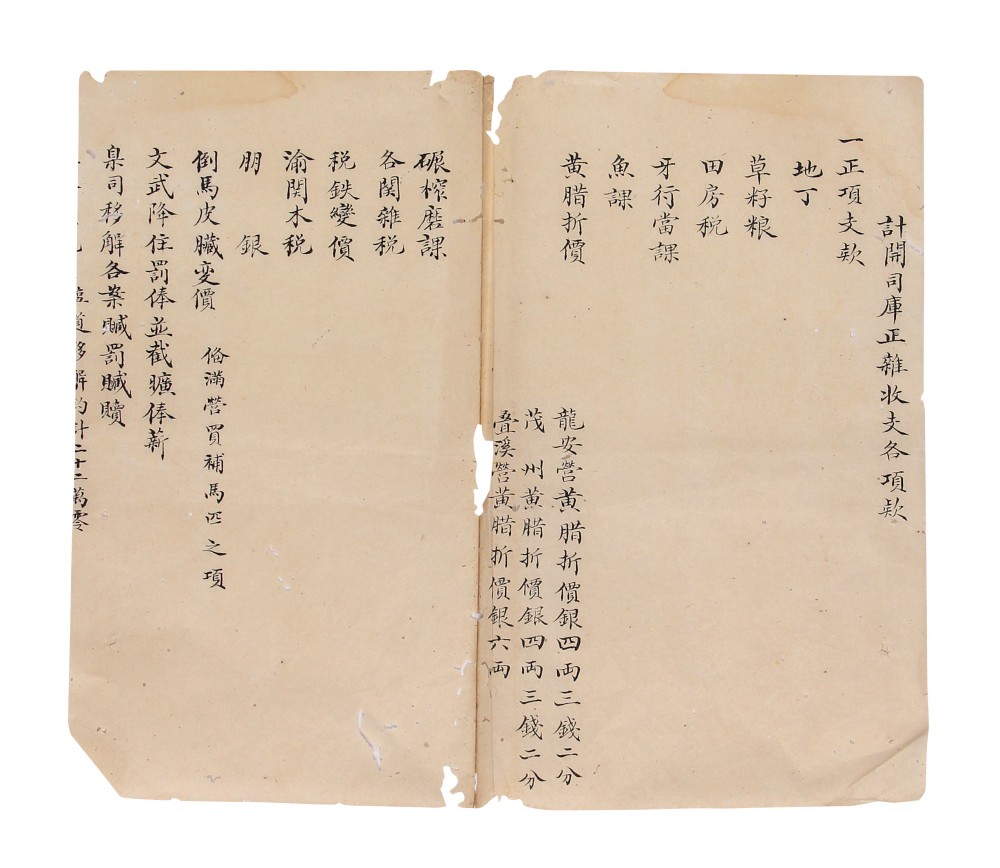 計開司庫正雜收支各項款
一正項支款
地丁
草籽粮
田房税
牙行當課
魚課
黄腊折價
龍安營黄腊折價銀四両三錢二分
茂州黄腊折價銀四両三錢二分
叠溪營黄腊折價銀六両
碾榨磨課
各関雜税
税鉄變價
渝関木税
朋銀
倒馬皮臟変價
俻滿營買補馬匹之項
文武降住罰俸並截曠俸薪
臬司移解各案贓罰贓贖
道移解約計二十二萬零